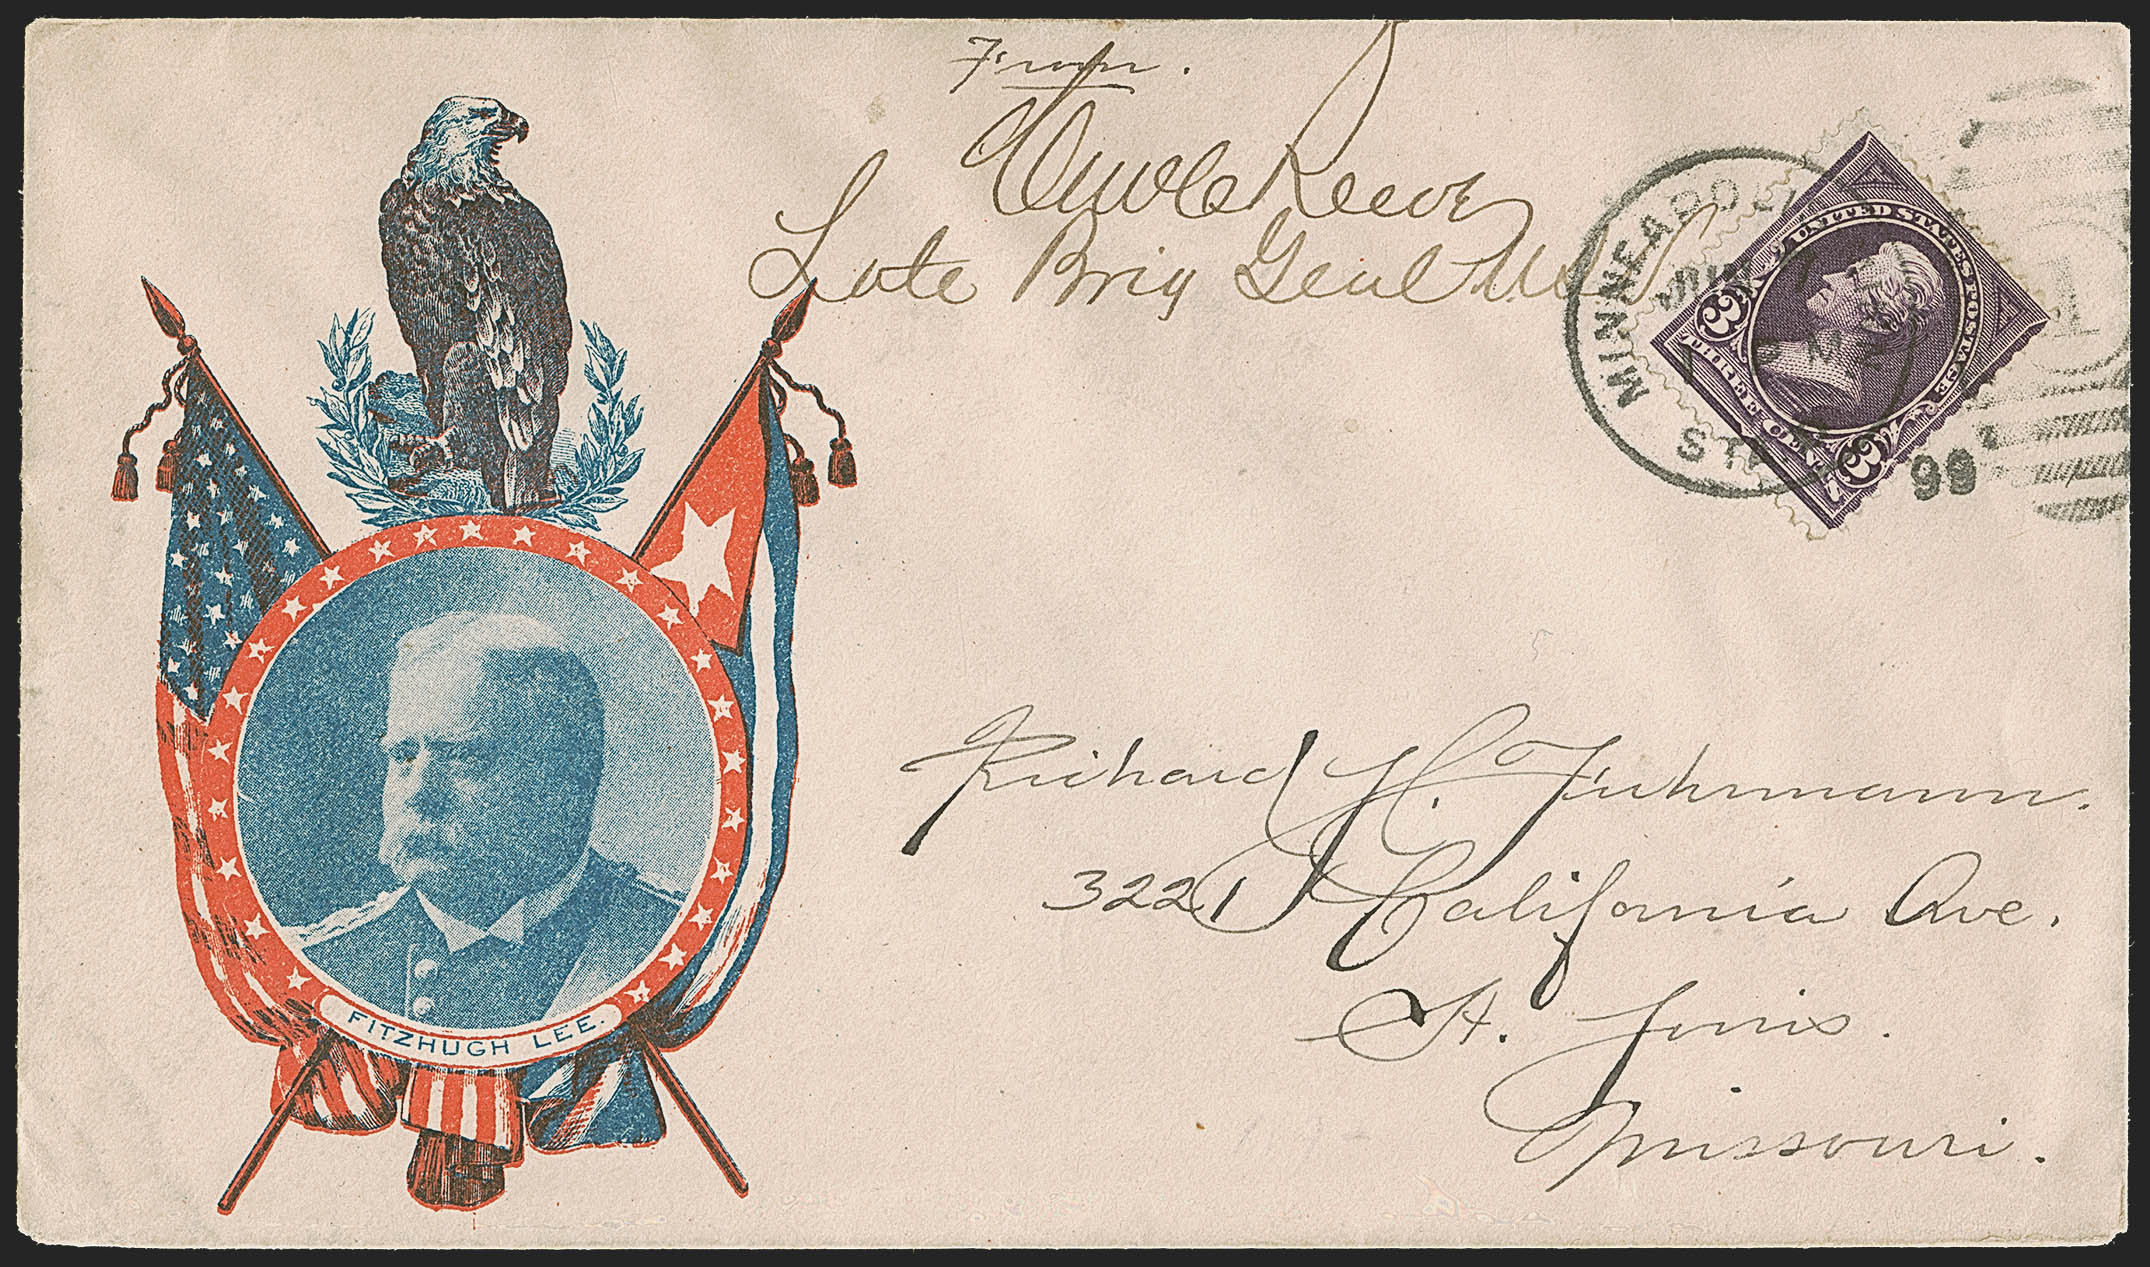 From.
Reeve
Late Brig Genl U.S.
MINNEAPOL
99
UNITED STATES POSTAGE
3 3
THREE CENTS
1
FITZHUGH LEE.
Richard H. Fuhrmann.
3221 California Ave.
St. Louis.
Missouri.